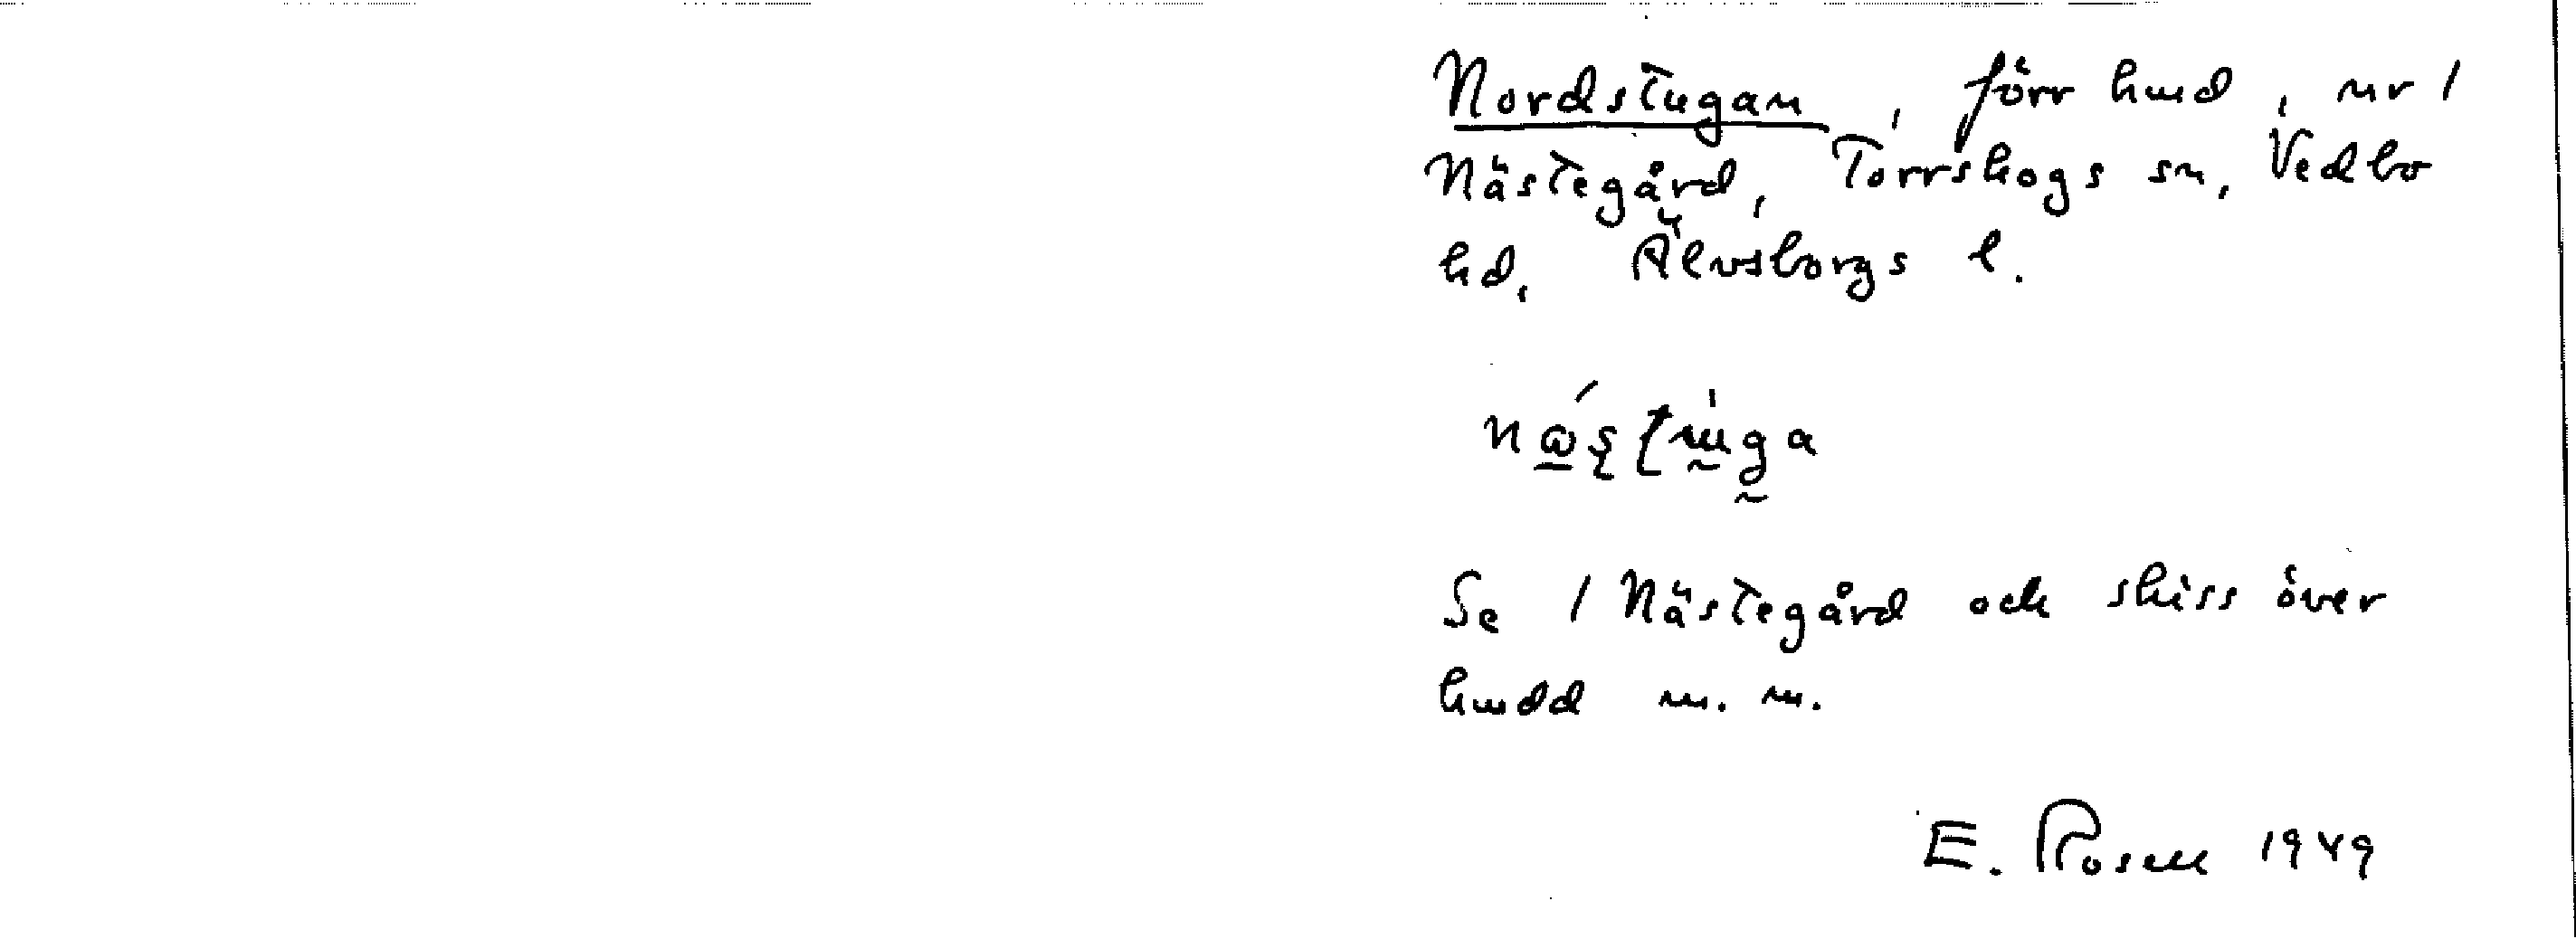 Nordstugan, förr hmd, nr 1
Nästegård, Torrskogs sn, Vedbo
hd, Älvsborgs l.
Se 1 Nästegård och skiss över
hmdd m. m.
E. Rosell 1949